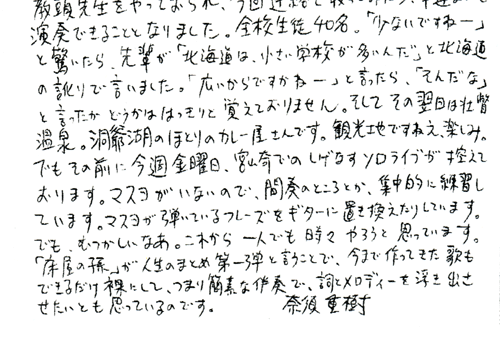 教頭先生をやっておられ、今回連絡
演奏できることとなりました。全校生徒40名。「少ないですねー」
と驚いたら、先輩が「北海道は、小さい学校が多いんだ」と北海道
の訛りで言いました。「広いからですかねー」と言ったら、「そんだな」
と言ったかどうかははっきりと覚えておりません。そしてその翌日は壮瞥
温泉。洞爺湖のほとりのカレー屋さんです。観光地ですねえ、楽しみ。
でもその前に今週金曜日、宮崎でのしげなすソロライブが控えて
おります。マスヨがいないので、間奏のところとか、集中的に練習し
ています。マスヨが弾いているフレーズをギターに置き換えたりしています。
でも、むつかしいなあ。これから一人でも時々やろうと思っています。
「床屋の孫」が人生のまとめ第一弾と言うことで、今まで作ってきた歌も
できるだけ裸にして、つまり簡素な伴奏で、詞とメロディーを浮き出さ
せたいとも思っているのです。 奈須重樹